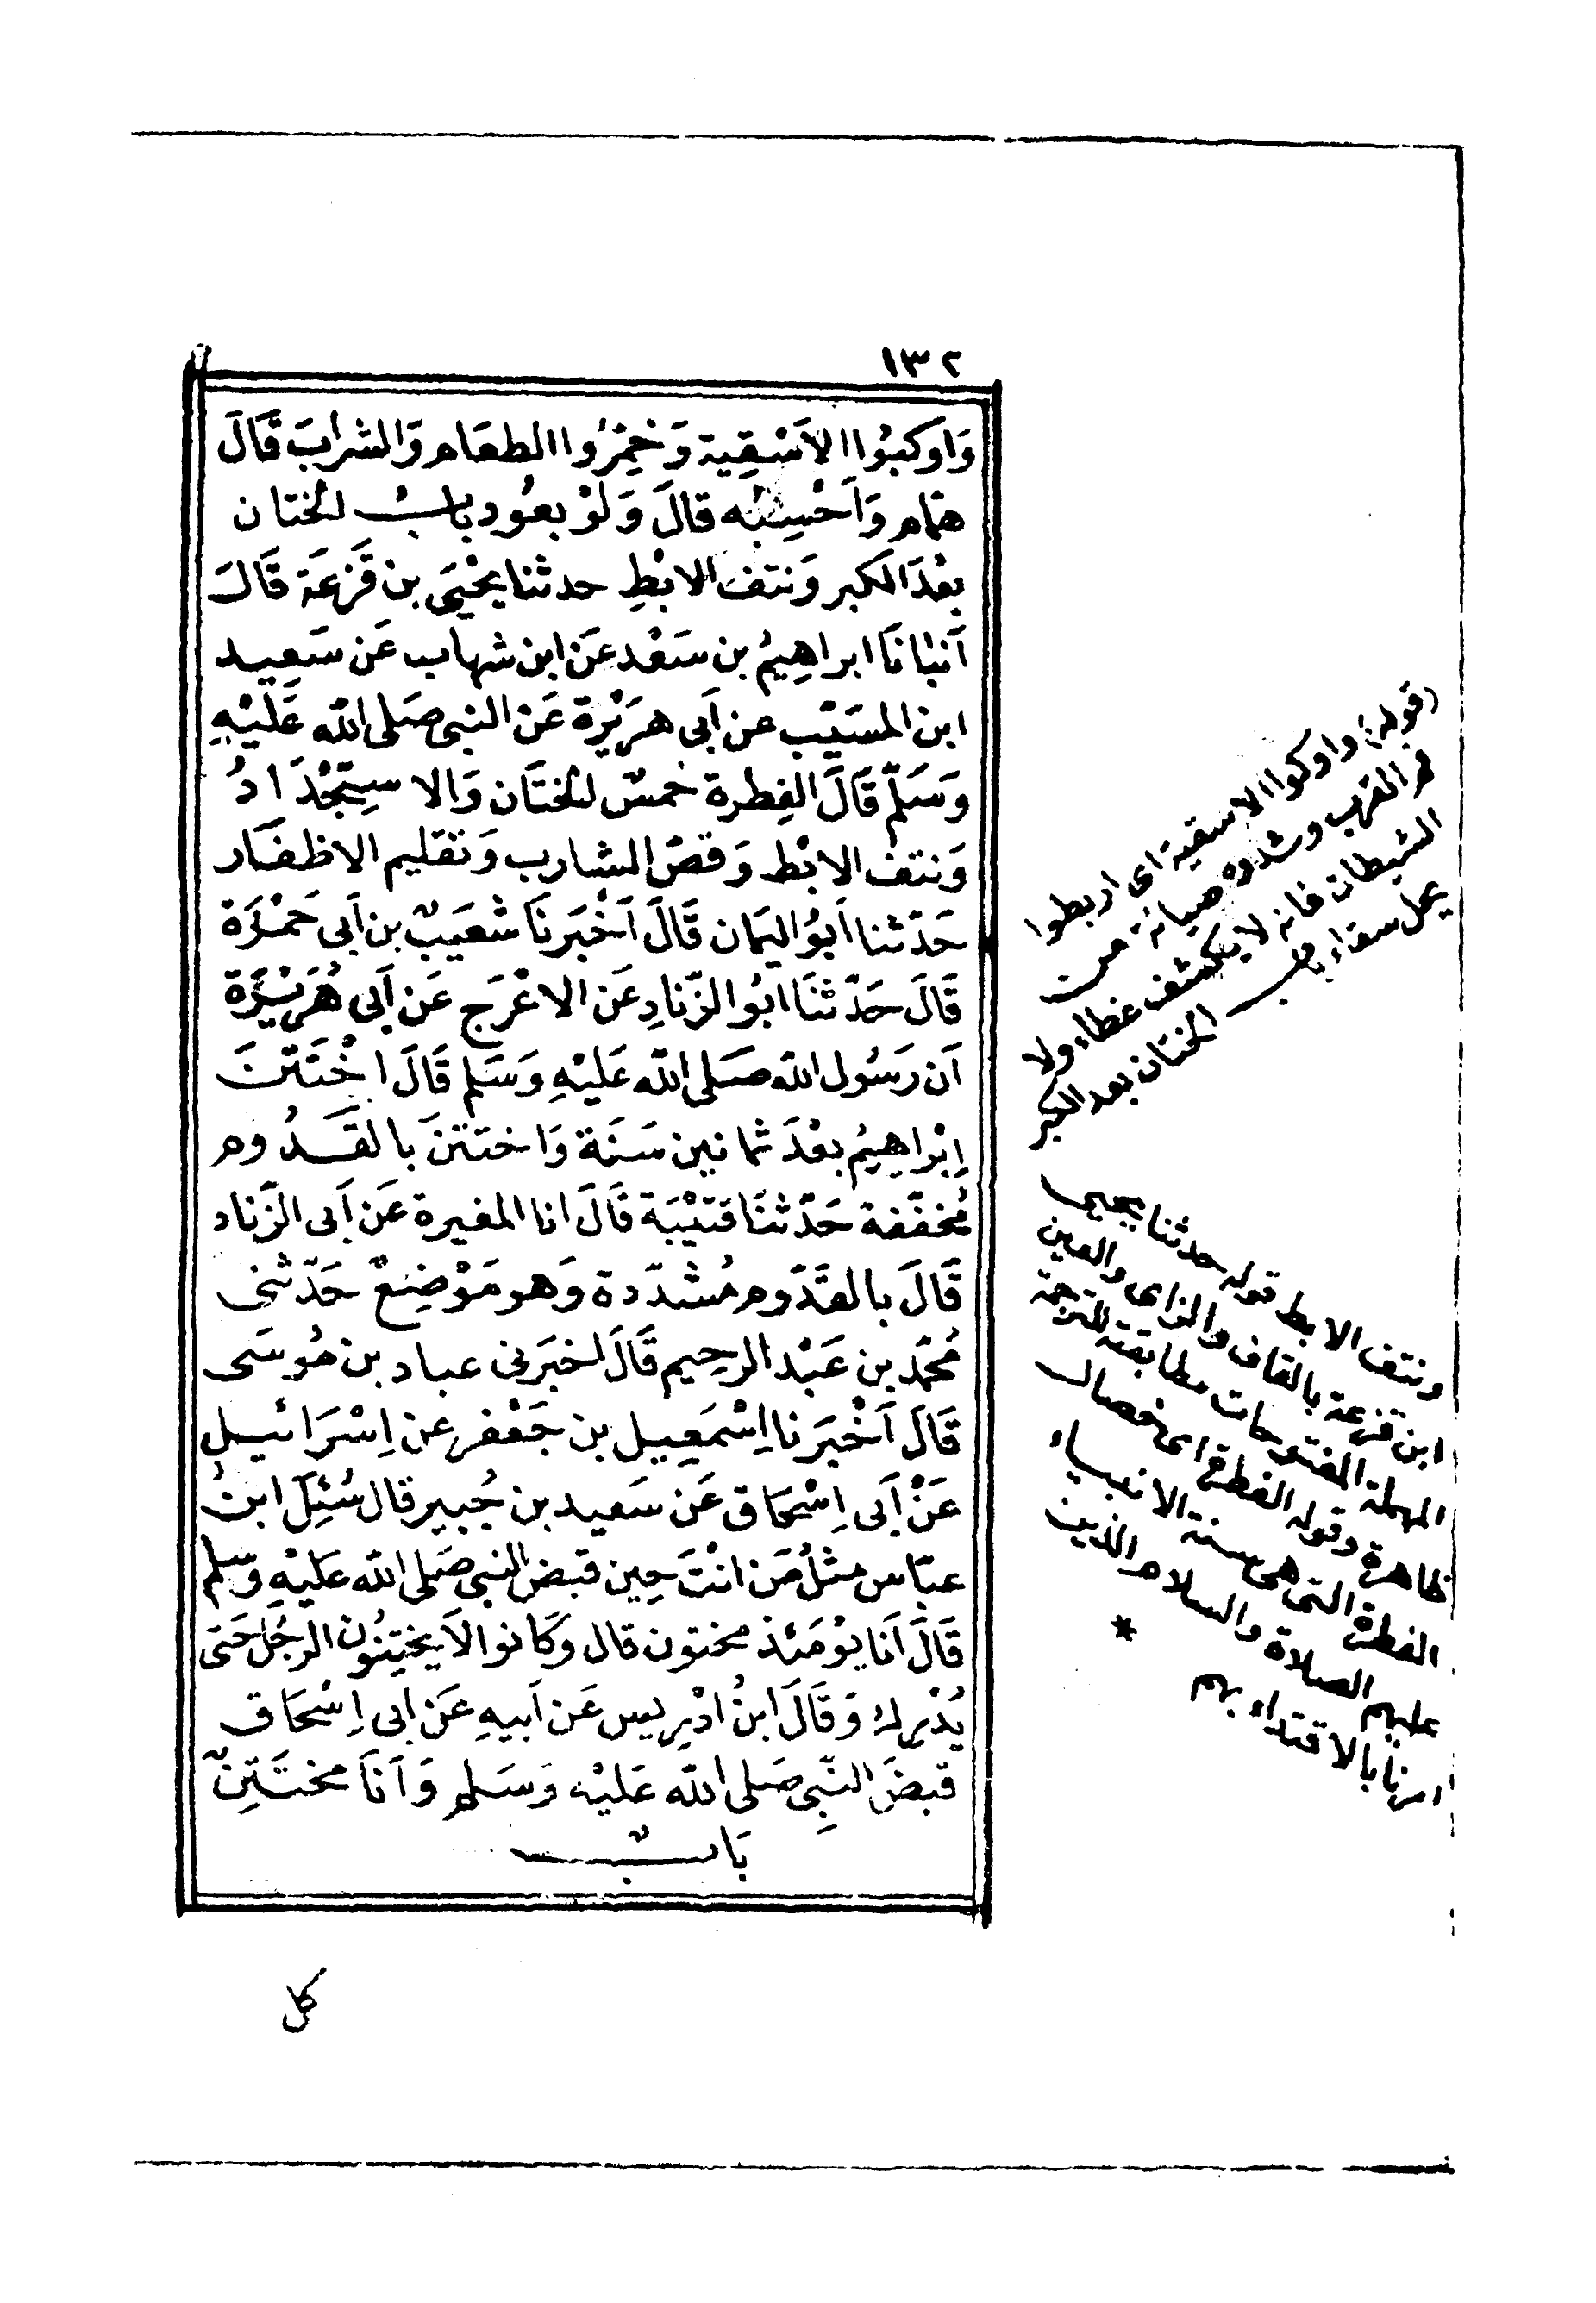 ١٣٢
وَاَوكبُوا الاَسْقِية وَخمِرُوا الطعَام وَالشرابَ قَالَ
همّام وَاَحْسِبُه قالَ وَلوْ بعُود بابُ الختان
بعْدَ الكبر وَنتف الابْطِ حدثنا يحْيَى بن قَزعَة قَالَ
اَنبْانَا ابراهِيمُ بن سَعْد عَن ابن شهاب عَن سَعِيد
ابن المسَيّب عن اَبى هرَيْرة عَن النبى صَلى الله عَليْهِ
وَسَلّم قَالَ الفِطرة خمسٌ الختَان وَالاستِحْدَادُ
وَنتفُ الابْط وَقصّ الشارب وَتقليم الاظفَار
حَدّثنا اَبوُ اليمَان قَالَ اَخْبَرنَا شعَيبٌ بن اَبى حَمْزَة
قَالَ حَدّثنَا ابُو الزّنادِ عَن الاعْرَج عَن اَبى هُرَيْرَة
اَن رَسُول الله صَلى الله عَليْهِ وَسَلم قَالَ اخْتَتَنَ
اِبْراهِيمُ بعْدَ ثمانين سَنَة وَاختتنَ بالقَدُوم
مُخفّفة حَدّثنَا قتيْبَة قَالَ انا المغيرة عَن اَبى الزّناد
قَالَ بالقَدّوم مُشدّدة وَهو مَوْضِعٌ حَدّثنى
مُحمّد بن عَبْد الرحِيم قَالَ اخبَرنى عباد بن مُوسَى
قَالَ اَخْبَرنا اِسْمَعِيل بن جَعْفر عن اِسْرَائيل
عَنْ اَبى اِسْحَاق عَن سَعيد بن جُبير قال سُئِلَ ابنُ
عبّاس مثلُ مَن انْتَ حِين قبضَ النبى صَلى الله عَليْهِ وَسلم
قَالَ اَنا يوْمَئذ مختون قال وكَانوا لاَ يختِنُون الرجُلَ حَتى
يُدْرِك وَقَالَ ابنُ ادْرِيس عَن اَبيهِ عَن اَبى اِسْحَاق
قبضَ النّبِى صَلى الله عَليْه وَسَلم وَاَنَا مختَتِنٌ
بَابٌ
كل
(قوله) واوكوا الاسقية اى اربطوا
فم القرب وشدوه صيانة من
الشيطان فانه لا يكشف غطاء ولا
يحل سقاء باب الختان بعد الكبر
ونتف الابط قوله حدثنا يحيى
ابن قزعة بالقاف والزاى والعين
المهملة المفتوحات مطابقته للترجمة
ظاهرة وقوله الفطرة اى خصال
الفطرة التى هى سنة الانبياء
عليهم الصلاة والسلام الذين
امرنا بالاقتداء بهم *